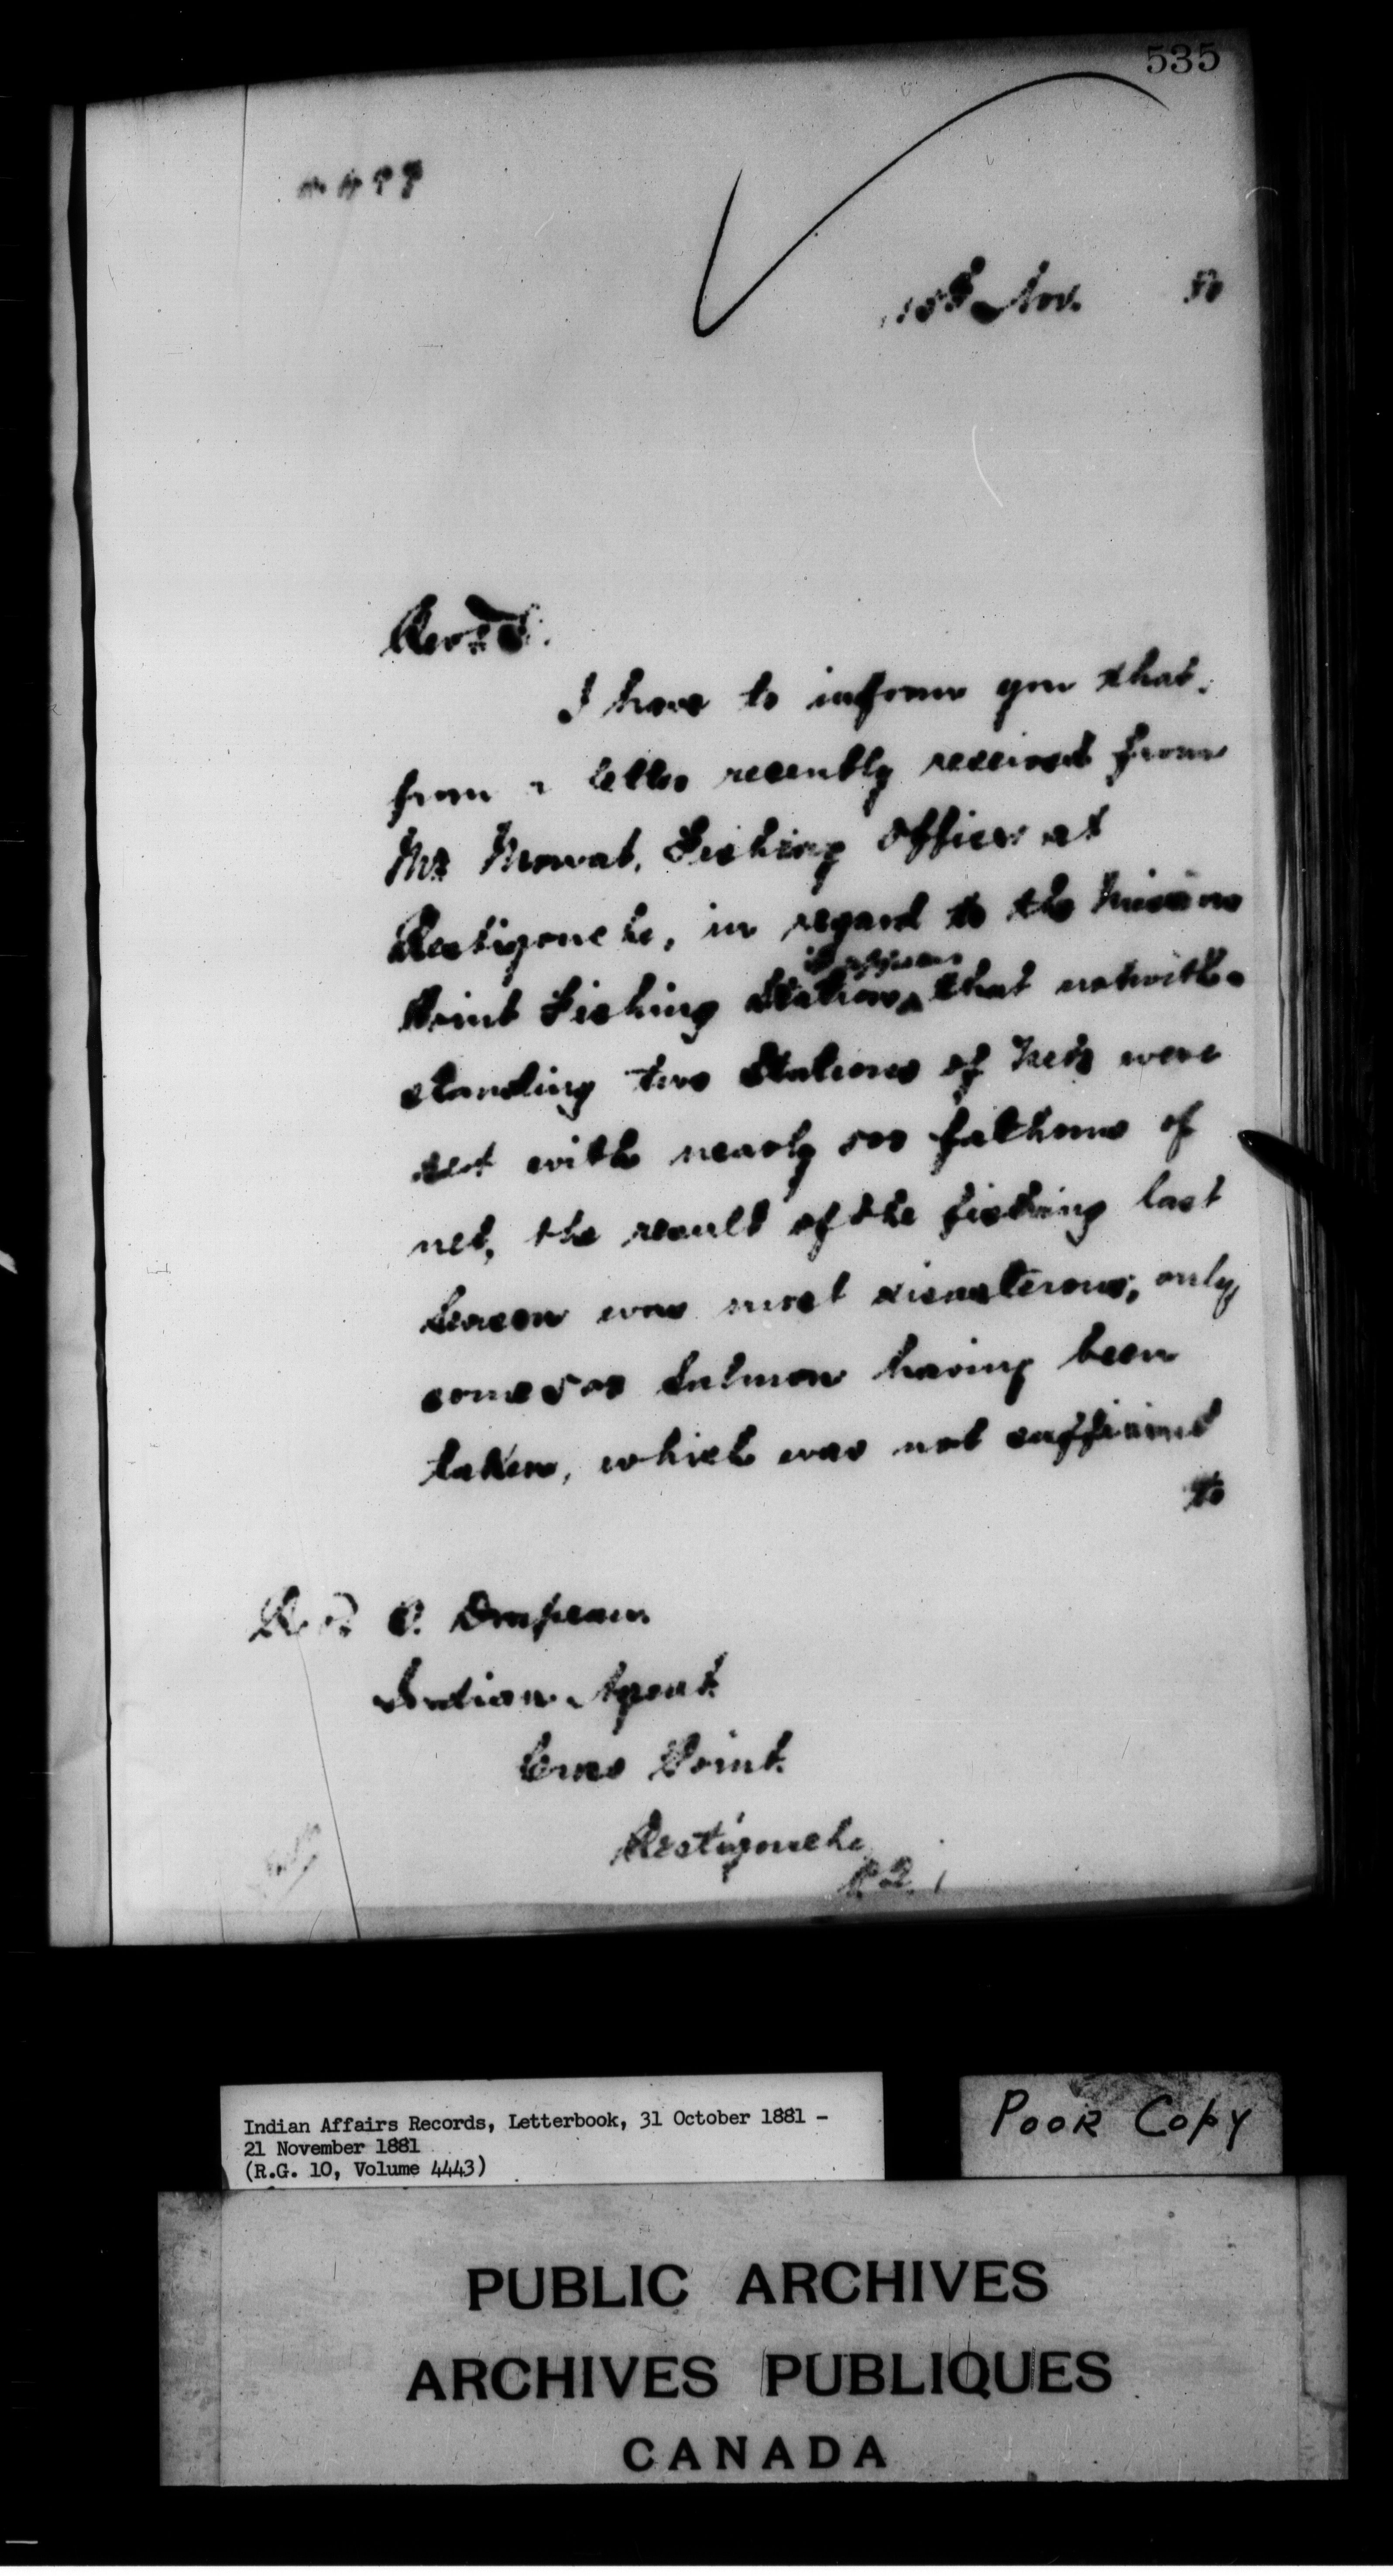 535
15th Nov.
Revd S.
I have to inform you that,
from a letter recently received from
Mr Mowat, Fishing Officer at
Restigouche, in regard to the Mission
it appears
Point Fishing Station, that notwith-
standing two Stations of Nets were
set with nearly 500 fathoms of
net, the result of the fishing last
Season was most disasterous, only
some 500 Salmon having been
taken, which was not sufficient
to
Revd O. Drapeau
Indian Agent
Cross Point
Restigouche
P.Q.
Indian Affairs Records, Letterbook, 31 October 1881 -
21 November 1881
(R.G. 10, Volume 4443)
POOR COPY
PUBLIC ARCHIVES
ARCHIVES PUBLIQUES
CANADA